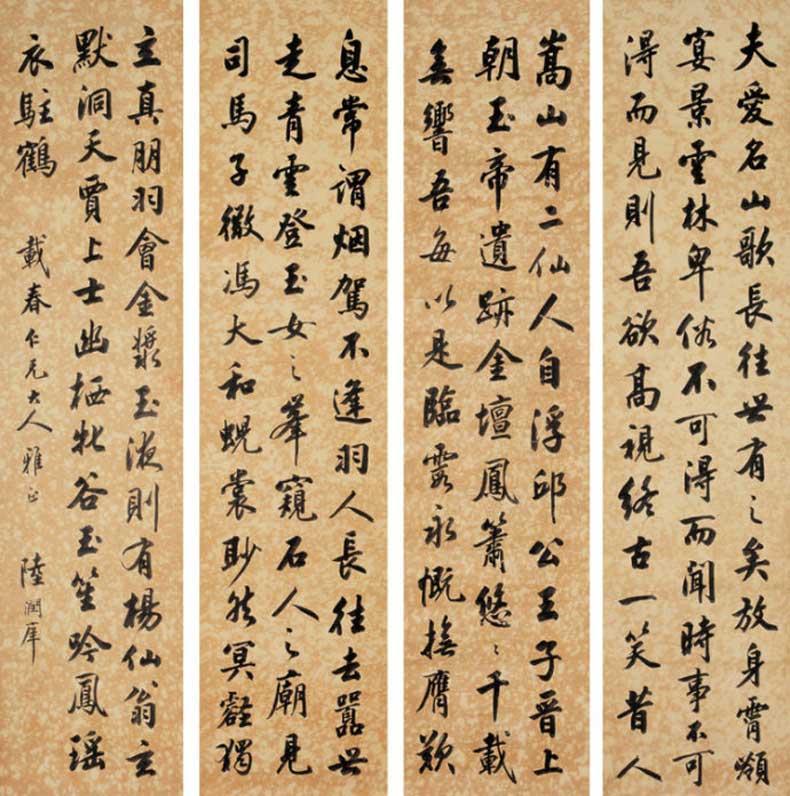 夫愛名山歌長往世有之矣放身霄嶺
宴景雲林卑俗不可得而聞時事不可
得而見則吾欲高視終古一笑昔人
嵩山有二仙人自浮邱公王子晉上
朝玉帝遺跡金壇鳳簫悠〻千載
無響吾每以是臨霞永慨撫膺歎
息常謂烟駕不逢羽人長往去囂世
走青雲登玉女之峯窺石人之廟見
司馬子微馮大和蜺裳眇然冥壑獨
立真朋羽會金漿玉液則有楊仙翁玄
默洞天賈上士幽栖牝谷玉笙吟鳳瑤
衣駐鶴 載春仁兄大人雅正 陸潤庠